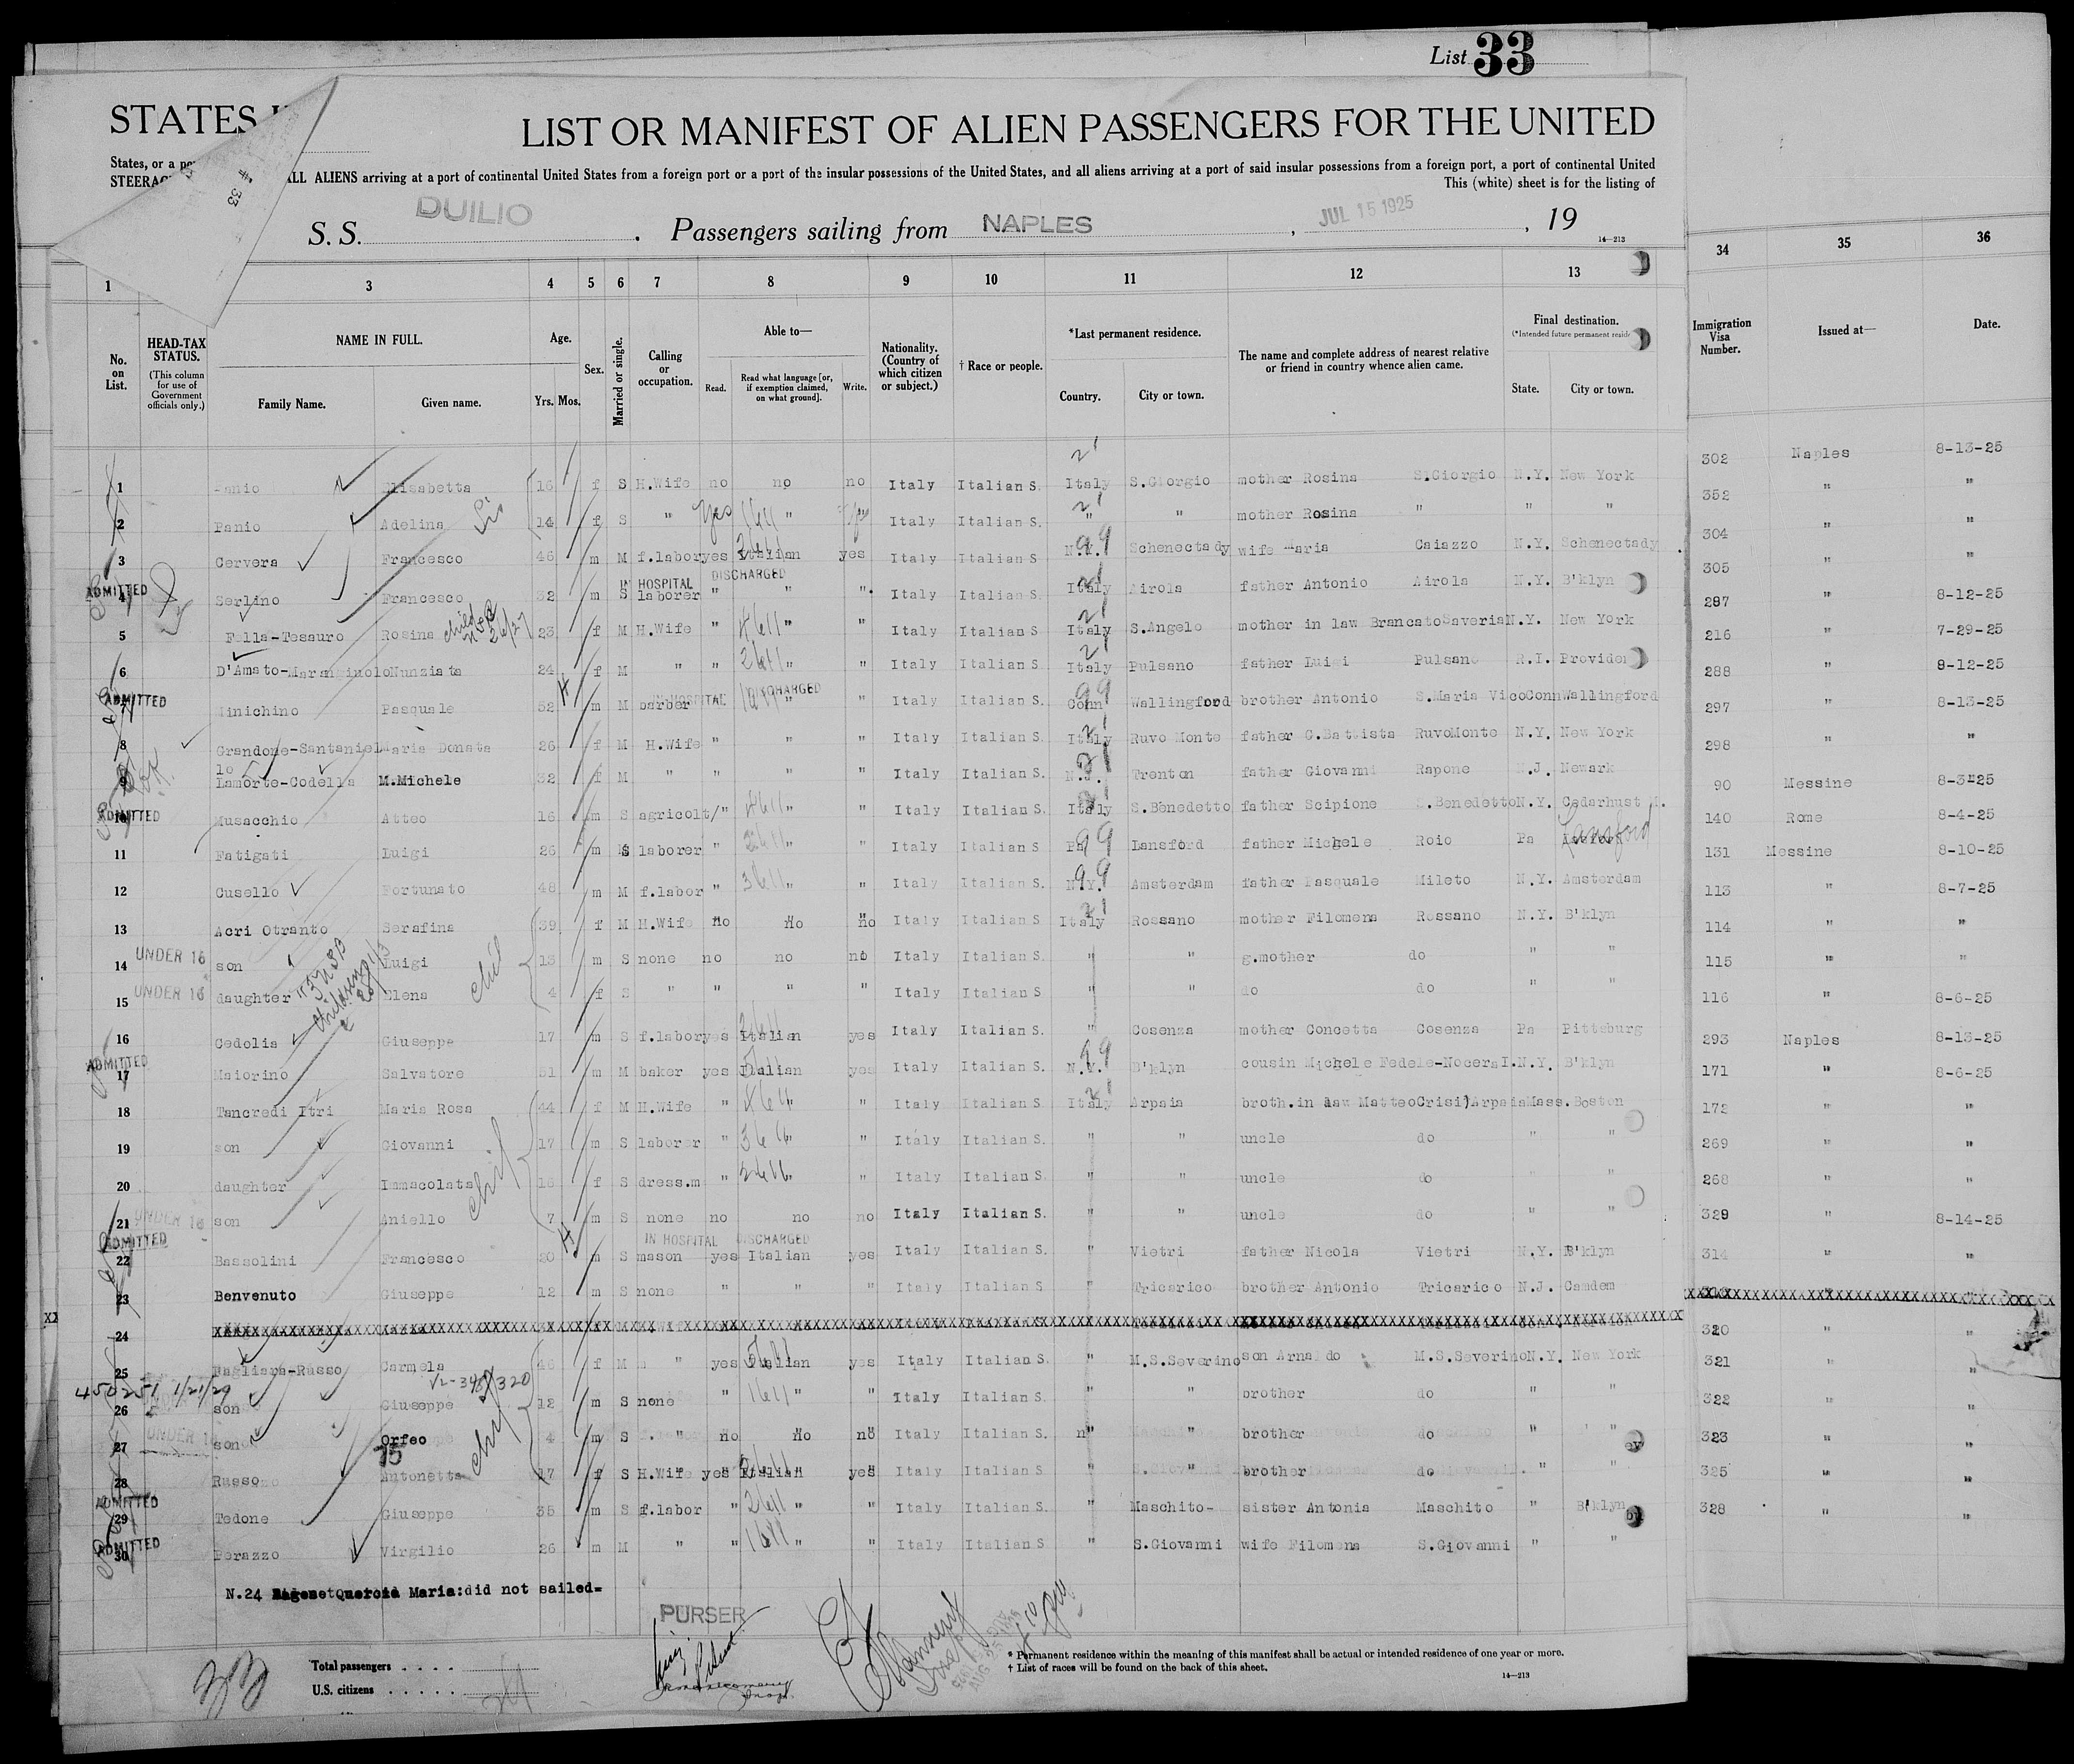 List 33
STATES
LIST OR MANIFEST OF ALIEN PASSENGERS FOR THE UNITED
States, or a
STEERAG
ALL ALIENS arriving at a port of continental United States from a foreign port or a port of the insular possessions of the United States, and all aliens arriving at a port of said insular possessions from a foreign port, a port of continental United
# 33
This (white) sheet is for the listing of
S. S. DUILIO . Passengers sailing from NAPLES , JUL 15 1925 , 19
14—213
1 3 4 5 6 7 8 9 10 11 12 13 34 35 36
No. on List.
HEAD-TAX STATUS. (This column for use of Government officials only.)
NAME IN FULL. Family Name. Given name.
Age. Yrs. Mos.
Sex.
Married or single.
Calling or occupation.
Able to— Read. Read what language [or, if exemption claimed, on what ground]. Write.
Nationality. (Country of which citizen or subject.)
† Race or people.
*Last permanent residence. Country. City or town.
The name and complete address of nearest relative or friend in country whence alien came.
Final destination. State. City or town.
Immigration Visa Number.
Issued at—
Date.
1 Elisabetta 16 f S H.Wife no no no Italy Italian S. Italy S.Giorgio mother Rosina S.Giorgio N.Y. New York 302 Naples 8-13-25
2 Panio Adelina 14 f S " Yes " Italy Italian S. " " mother Rosina " " " 352 " "
3 Cervera Francesco 46 m M f.labor yes Italian yes Italy Italian S. N.Y. Schenectady wife Maria Caiazzo N.Y. Schenectady 304 " "
IN HOSPITAL DISCHARGED
ADMITTED
4 Serlino Francesco 32 m S laborer " " " Italy Italian S. Italy Airola father Antonio Airola N.Y. B'klyn 305 " "
5 Fella-Tesauro Rosina 23 f M H.Wife " " " Italy Italian S Italy S.Angelo mother in law Brancato Saveria N.Y. New York 287 " 8-12-25
6 D'Amato-Marangiolo Nunziata 24 f M " " " " Italy Italian S. Italy Pulsano father Luigi Pulsano R.I. Providen 216 " 7-29-25
ADMITTED
IN HOSPITAL DISCHARGED
7 Ninichino Pasquale 52 m M barber " " Italy Italian S. Conn Wallingford brother Antonio S.Maria Vico Conn Wallingford 288 " 8-12-25
8 Grandone-Santaniello Maria Donata 26 f M H.Wife " " " Italy Italian S. Italy Ruvo Monte father G.Battista RuvoMonte N.Y. New York 297 " 8-13-25
9 Lamorte-Codella M.Michele 32 f M " " " " Italy Italian S. N.J. Trenton father Giovanni Rapone N.J. Newark 298 " "
ADMITTED
10 Musacchio Atteo 16 m S agricolt " " " Italy Italian S. Italy S.Benedetto father Scipione S.Benedetto N.Y. Cedarhust 90 Messine 8-3-25
11 Fatigati Luigi 26 m S laborer " " " Italy Italian S Pa Lansford father Michele Roio Pa Lansford 140 Rome 8-4-25
12 Cusello Fortunato 48 m M f.labor " " " Italy Italian S. N.Y. Amsterdam father Pasquale Mileto N.Y. Amsterdam 131 Messine 8-10-25
13 Acri Otranto Serafina 39 f M H.Wife no no no Italy Italian S Italy Rossano mother Filomena Rossano N.Y. B'klyn 113 " 8-7-25
14 UNDER 16 son Luigi 13 m S none no no no Italy Italian S. " " g.mother do " " 114 " "
15 UNDER 16 daughter Elena 4 f S " " " " Italy Italian S " " do do " " 115 " "
16 Cedolia Giuseppe 17 m S f.labor yes Italian yes Italy Italian S. " Cosenza mother Concetta Cosenza Pa Pittsburg 116 " 8-6-25
ADMITTED
17 Maiorino Salvatore 51 m M baker yes Italian yes Italy Italian S. N.Y. B'klyn cousin Michele Fedele-Nocera I. N.Y. B'klyn 293 Naples 8-13-25
18 Tancredi Itri Maria Rosa 44 f M H.Wife " " Italy Italian S. Italy Arpaia broth.in law Matteo Crisi)Arpaia Mass. Boston 171 " 8-6-25
19 son Giovanni 17 m S laborer " " " Italy Italian S. " " uncle do " " 172 " "
20 daughter Immacolata 16 f S dress.m " " " Italy Italian S. " " uncle do " 269 " "
21 UNDER 16 son Aniello 7 m S none no no no Italy Italian S. " " uncle do " " 268 " "
ADMITTED
IN HOSPITAL DISCHARGED
22 Bassolini Francesco 20 m S mason yes Italian yes Italy Italian S. " Vietri father Nicola Vietri N.Y. B'klyn 329 " 8-14-25
23 Benvenuto Giuseppe 12 m S none " " " Italy Italian S. " Tricarico brother Antonio Tricarico N.J. Camdem 314 " "
24
25 Pagliara-Russo Carmela 46 f M " yes Italian yes Italy Italian S. " M.S.Severino son Arnaldo M.S.Severino N.Y. New York 320 " "
450251 1/21/29
26 son Giuseppe 12 m S none " " " Italy Italian S. " " brother do " " 321 " "
27 UNDER 16 son Orfeo 4 m S " no no no Italy Italian S. " brother do " " 322 " "
28 Russo Antonetta 17 f S H.Wife yes Italian yes Italy Italian S. " " brother do " " 323 " "
ADMITTED
29 Tedone Giuseppe 35 m S f.labor " " " Italy Italian S. " Maschito- sister Antonia Maschito " B'klyn 325 " "
ADMITTED
30 Perazzo Virgilio 26 m M " " " " Italy Italian S " S.Giovanni wife Filomena S.Giovanni " " 328 " "
N.24 Maria:did not sailed=
PURSER
Total passengers . . . .
U.S. citizens . . . . .
* Permanent residence within the meaning of this manifest shall be actual or intended residence of one year or more.
† List of races will be found on the back of this sheet.
14—213